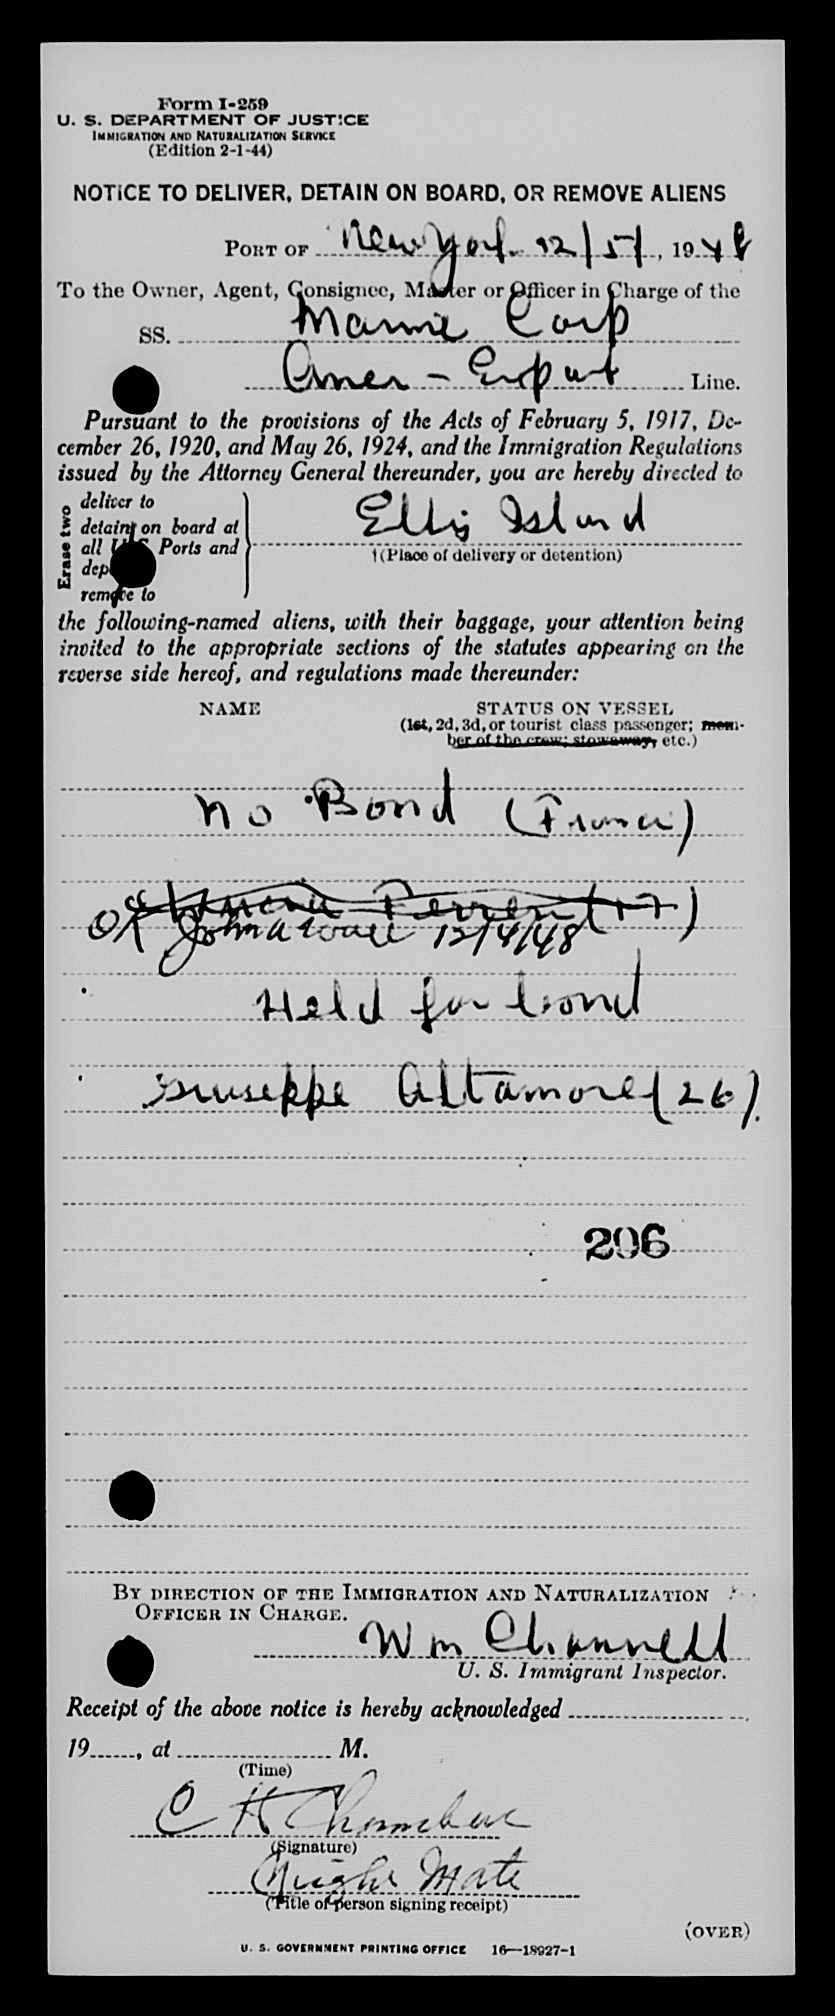 Form I-259
U. S. DEPARTMENT OF JUSTICE
IMMIGRATION AND NATURALIZATION SERVICE
(Edition 2-1-44)
NOTICE TO DELIVER, DETAIN ON BOARD, OR REMOVE ALIENS
PORT OF New York 12/5/, 1948
To the Owner, Agent, Consignee, Master or Officer in Charge of the
SS. Marine Carp
Amer - Export Line.
Pursuant to the provisions of the Acts of February 5, 1917, De-
cember 26, 1920, and May 26, 1924, and the Immigration Regulations
issued by the Attorney General thereunder, you are hereby directed to
Erase two
deliver to
detain on board at
all U S Ports and
dep
remove to
Ellis Island
†(Place of delivery or detention)
the following-named aliens, with their baggage, your attention being
invited to the appropriate sections of the statutes appearing on the
reverse side hereof, and regulations made thereunder:
NAME
STATUS ON VESSEL
(1st, 2d, 3d, or tourist class passenger; mem-
ber of the crew; stowaway, etc.)
No Bond (France)
(17)
OK John A 12/4/48
Held for bond
Giuseppe Altamore (26).
206
BY DIRECTION OF THE IMMIGRATION AND NATURALIZATION
OFFICER IN CHARGE.
Wm Channell
U. S. Immigrant Inspector.
Receipt of the above notice is hereby acknowledged
19 , at M.
(Time)
C H
(Signature)
Night Mate
(Title of person signing receipt)
(OVER)
U. S. GOVERNMENT PRINTING OFFICE 16—18927-1